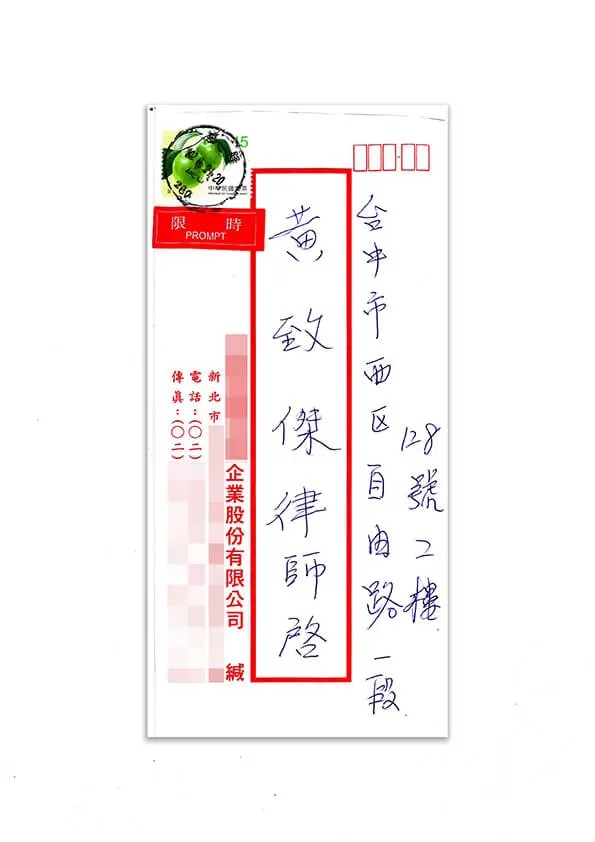 台中市西区自由路一段
128號2樓
黃致傑律師啓
15
中華民國郵票
限時
PROMPT
企業股份有限公司 緘
新北市
電話：(〇二)
傳真：(〇二)